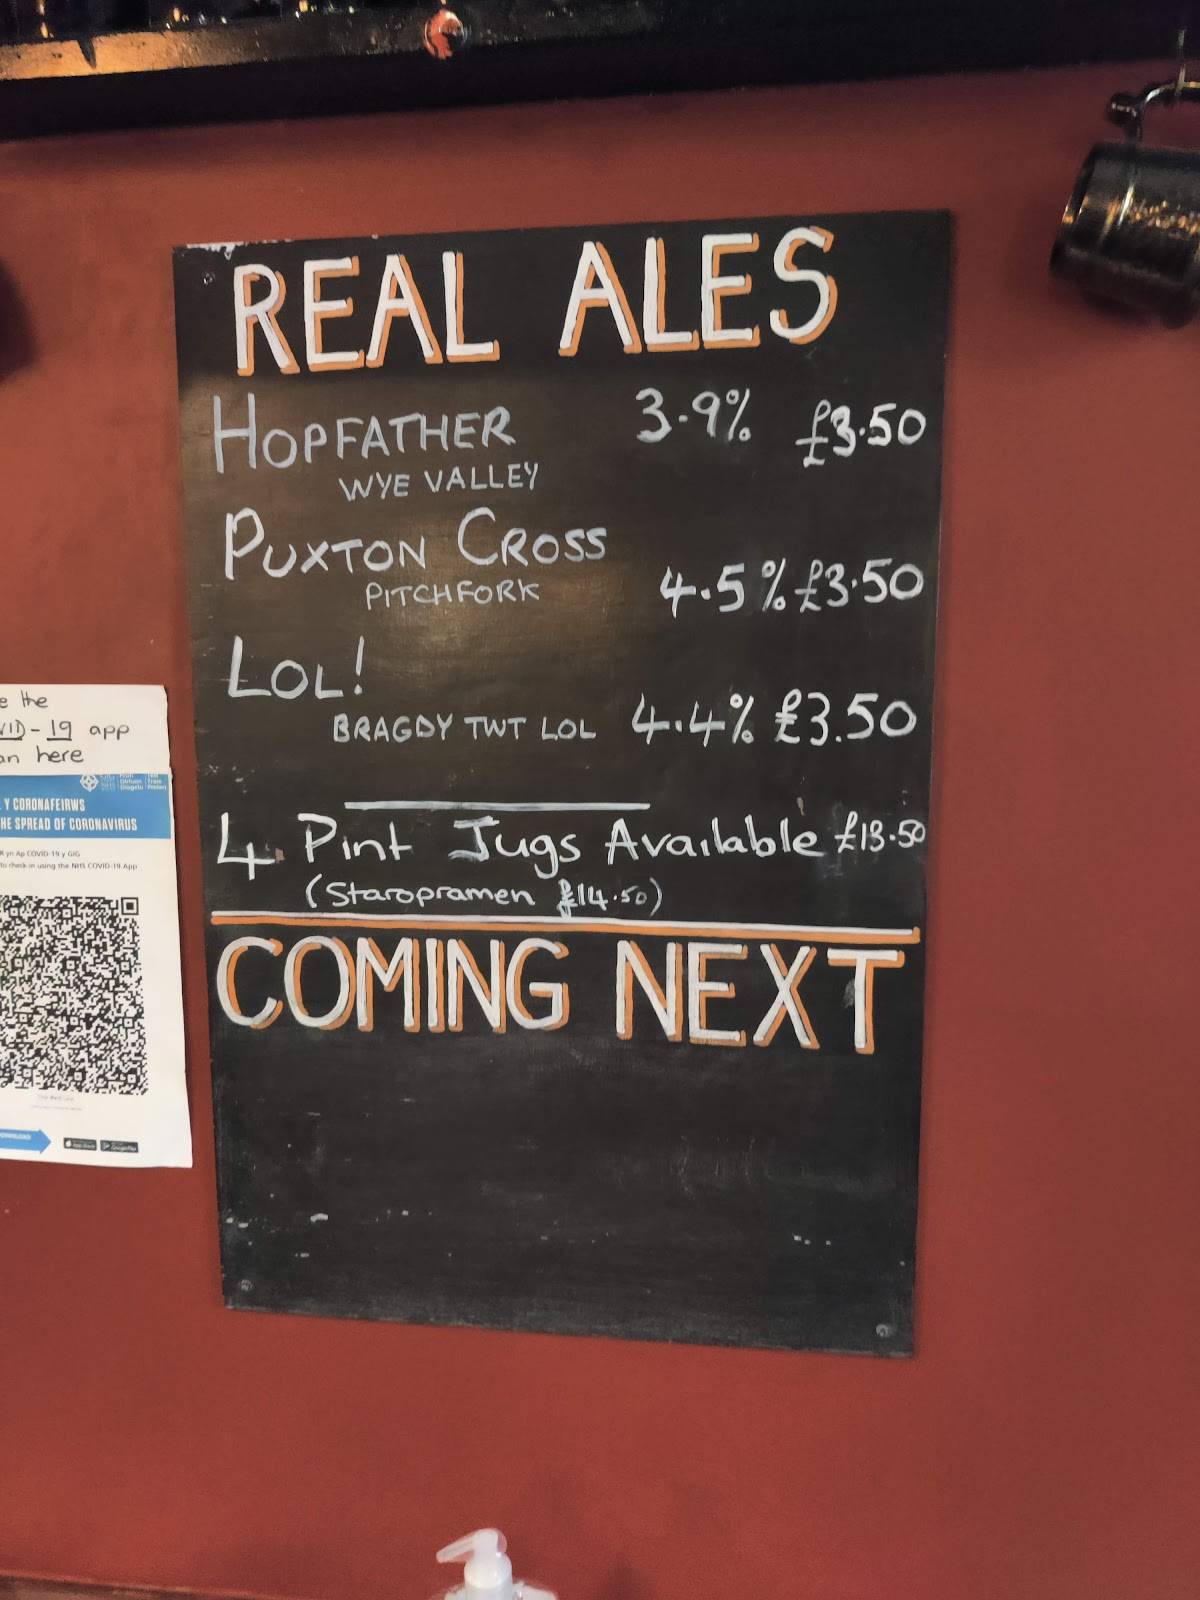 REAL ALES
HOPFATHER 3.9% £3.50
WYE VALLEY
PUXTON CROSS
PITCHFORK 4.5% £3.50
LOL!
BRAGDY TWT LOL 4.4% £3.50
4 Pint Jugs Available £13.50
(Staropramen £14.50)
COMING NEXT
the
-19 app
here
Y CORONAFEIRWS
THE SPREAD OF CORONAVIRUS
yn Ap COVID-19 y GIG
to check in using the NHS COVID-19 App
DOWNLOAD
App Store
Google Play